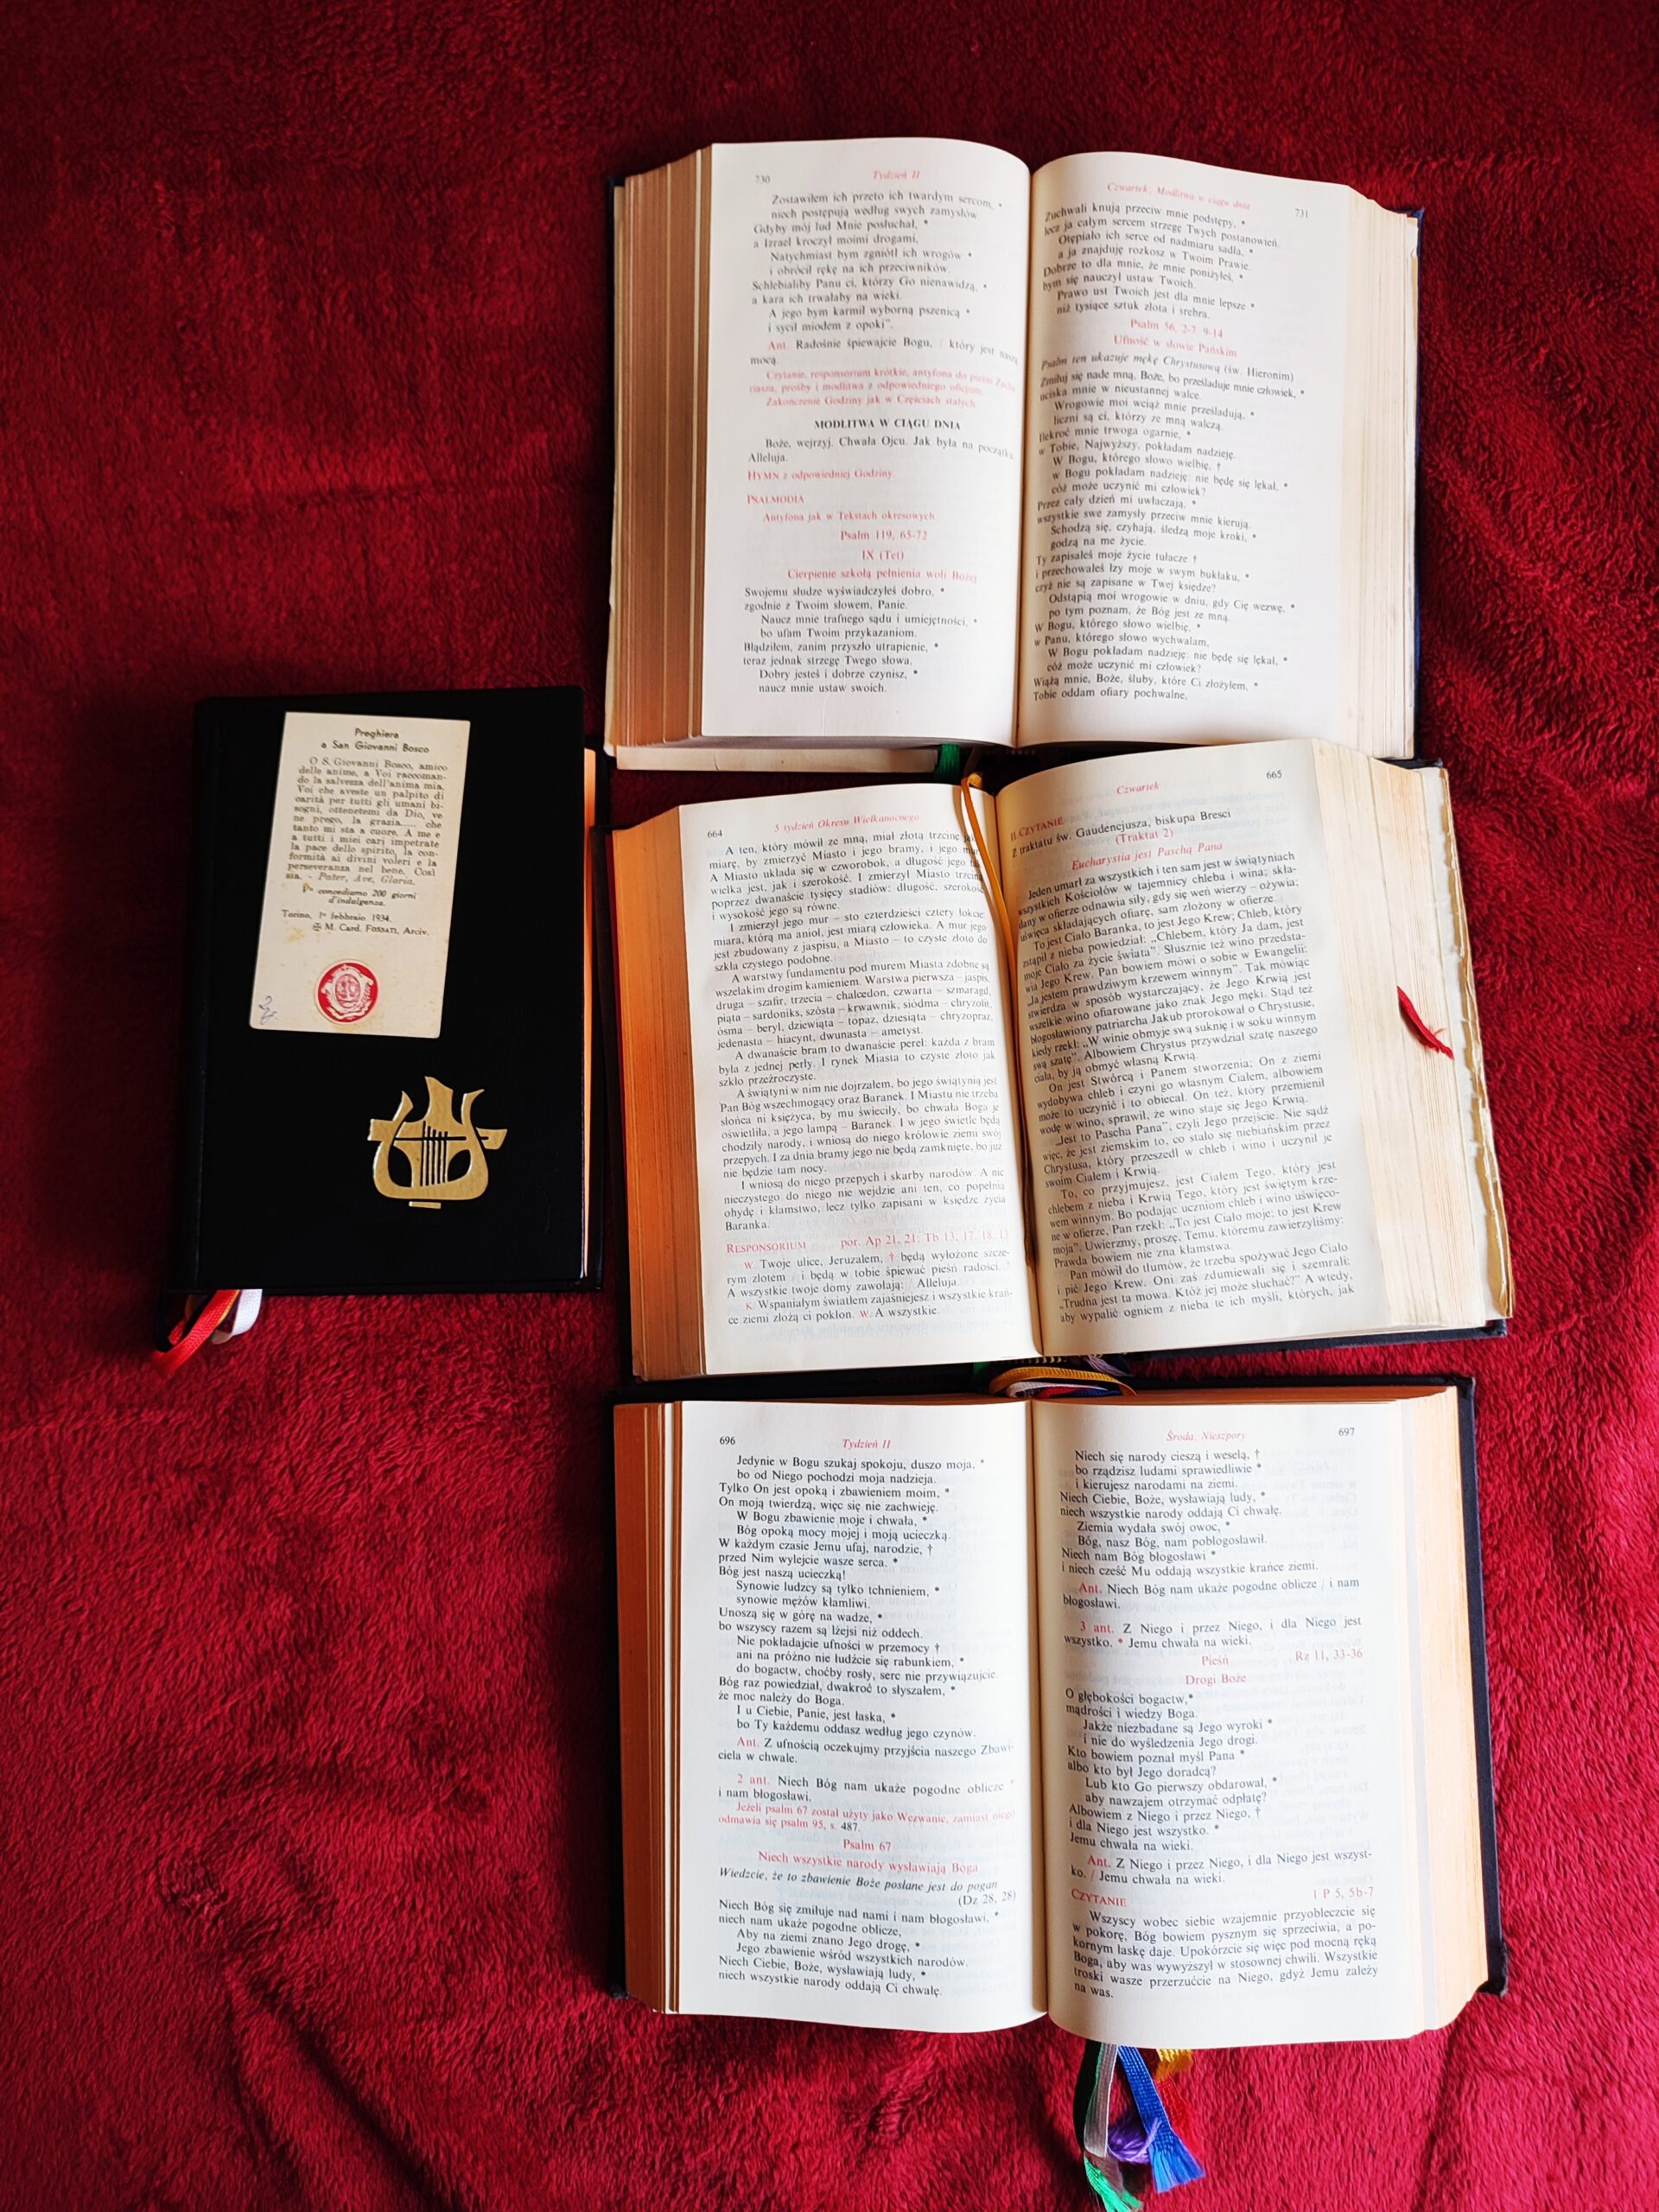 Preghiera
a San Giovanni Bosco
O S. Giovanni Bosco, amico
delle anime, a Voi raccoman-
do la salvezza dell'anima mia.
Voi che aveste un palpito di
carità per tutti gli umani bi-
sogni, ottenetemi da Dio, ve
ne prego, la grazia..... che
tanto mi sta a cuore. A me e
a tutti i miei cari impetrate
la pace dello spirito, la con-
formità ai divini voleri e la
perseveranza nel bene. Così
sia. - Pater, Ave, Gloria.
concediamo 200 giorni
d'indulgenza.
Torino, 1° febbraio 1934.
✠ M. Card. FOSSATI, Arciv.
730 Tydzień II
Zostawiłem ich przeto ich twardym sercom, *
niech postępują według swych zamysłów.
Gdyby mój lud Mnie posłuchał, *
a Izrael kroczył moimi drogami,
Natychmiast bym zgniótł ich wrogów *
i obrócił rękę na ich przeciwników.
Schlebialiby Panu ci, którzy Go nienawidzą, *
a kara ich trwałaby na wieki.
A jego bym karmił wyborną pszenicą *
i sycił miodem z opoki".
Ant. Radośnie śpiewajcie Bogu, / który jest naszą
mocą.
Czytanie, responsorium krótkie, antyfona do pieśni Zacha-
riasza, prośby i modlitwa z odpowiedniego oficjum.
Zakończenie Godziny jak w Częściach stałych.
MODLITWA W CIĄGU DNIA
Boże, wejrzyj. Chwała Ojcu. Jak była na początku.
Alleluja.
HYMN z odpowiedniej Godziny.
PSALMODIA
Antyfona jak w Tekstach okresowych.
Psalm 119, 65-72
IX (Tet)
Cierpienie szkołą pełnienia woli Bożej
Swojemu słudze wyświadczyłeś dobro, *
zgodnie z Twoim słowem, Panie.
Naucz mnie trafnego sądu i umiejętności, *
bo ufam Twoim przykazaniom.
Błądziłem, zanim przyszło utrapienie, *
teraz jednak strzegę Twego słowa.
Dobry jesteś i dobrze czynisz, *
naucz mnie ustaw swoich.
Czwartek, Modlitwa w ciągu dnia 731
Zuchwali knują przeciw mnie podstępy, *
lecz ja całym sercem strzegę Twych postanowień.
Otępiało ich serce od nadmiaru sadła, *
a ja znajduję rozkosz w Twoim Prawie.
Dobrze to dla mnie, że mnie poniżyłeś, *
bym się nauczył ustaw Twoich.
Prawo ust Twoich jest dla mnie lepsze *
niż tysiące sztuk złota i srebra.
Psalm 56, 2-7. 9-14
Ufność w słowie Pańskim
Psalm ten ukazuje mękę Chrystusową (św. Hieronim)
Zmiłuj się nade mną, Boże, bo prześladuje mnie człowiek, *
uciska mnie w nieustannej walce.
Wrogowie moi wciąż mnie prześladują, *
liczni są ci, którzy ze mną walczą.
Ilekroć mnie trwoga ogarnie, *
w Tobie, Najwyższy, pokładam nadzieję.
W Bogu, którego słowo wielbię, †
w Bogu pokładam nadzieję: nie będę się lękał, *
cóż może uczynić mi człowiek?
Przez cały dzień mi uwłaczają, *
wszystkie swe zamysły przeciw mnie kierują.
Schodzą się, czyhają, śledzą moje kroki, *
godzą na me życie.
Ty zapisałeś moje życie tułacze †
i przechowałeś łzy moje w swym bukłaku, *
czyż nie są zapisane w Twej księdze?
Odstąpią moi wrogowie w dniu, gdy Cię wezwę, *
po tym poznam, że Bóg jest ze mną.
W Bogu, którego słowo wielbię, *
w Panu, którego słowo wychwalam,
W Bogu pokładam nadzieję: nie będę się lękał, *
cóż może uczynić mi człowiek?
Wiążą mnie, Boże, śluby, które Ci złożyłem, *
Tobie oddam ofiary pochwalne,
664 5 tydzień Okresu Wielkanocnego
A ten, który mówił ze mną, miał złotą trzcinę jako
miarę, by zmierzyć Miasto i jego bramy, i jego mur.
A Miasto układa się w czworobok, a długość jego
wielka jest, jak i szerokość. I zmierzył Miasto trzciną
poprzez dwanaście tysięcy stadiów: długość, szerokość
i wysokość jego są równe.
I zmierzył jego mur – sto czterdzieści cztery łokcie:
miara, którą ma anioł, jest miarą człowieka. A mur jego
jest zbudowany z jaspisu, a Miasto – to czyste złoto do
szkła czystego podobne.
A warstwy fundamentu pod murem Miasta zdobne są
wszelakim drogim kamieniem. Warstwa pierwsza – jaspis,
druga – szafir, trzecia – chalcedon, czwarta – szmaragd,
piąta – sardoniks, szósta – krwawnik, siódma – chryzolit,
ósma – beryl, dziewiąta – topaz, dziesiąta – chryzopraz,
jedenasta – hiacynt, dwunasta – ametyst.
A dwanaście bram to dwanaście pereł: każda z bram
była z jednej perły. I rynek Miasta to czyste złoto jak
szkło przeźroczyste.
A świątyni w nim nie dojrzałem, bo jego świątynią jest
Pan Bóg wszechmogący oraz Baranek. I Miastu nie trzeba
słońca ni księżyca, by mu świeciły, bo chwała Boga je
oświetliła, a jego lampą – Baranek. I w jego świetle będą
chodziły narody, i wniosą do niego królowie ziemi swój
przepych. I za dnia bramy jego nie będą zamknięte, bo już
nie będzie tam nocy.
I wniosą do niego przepych i skarby narodów. A nic
nieczystego do niego nie wejdzie ani ten, co popełnia
ohydę i kłamstwo, lecz tylko zapisani w księdze życia
Baranka.
RESPONSORIUM por. Ap 21, 21; Tb 13, 17. 18. 13
W. Twoje ulice, Jeruzalem, † będą wyłożone szcze-
rym złotem / i będą w tobie śpiewać pieśń radości. *
A wszystkie twoje domy zawołają: / Alleluja.
K. Wspaniałym światłem zajaśniejesz i wszystkie krań-
ce ziemi złożą ci pokłon. W. A wszystkie.
Czwartek 665
II CZYTANIE
Z traktatu św. Gaudencjusza, biskupa Bresci
(Traktat 2)
Eucharystia jest Paschą Pana
Jeden umarł za wszystkich i ten sam jest w świątyniach
wszystkich Kościołów w tajemnicy chleba i wina; skła-
dany w ofierze odnawia siły, gdy się weń wierzy – ożywia;
uświęca składających ofiarę, sam złożony w ofierze.
To jest Ciało Baranka, to jest Jego Krew; Chleb, który
zstąpił z nieba powiedział: „Chlebem, który Ja dam, jest
moje Ciało za życie świata". Słusznie też wino przedsta-
wia Jego Krew. Pan bowiem mówi o sobie w Ewangelii:
„Ja jestem prawdziwym krzewem winnym". Tak mówiąc
stwierdza w sposób wystarczający, że Jego Krwią jest
wszelkie wino ofiarowane jako znak Jego męki. Stąd też
błogosławiony patriarcha Jakub prorokował o Chrystusie,
kiedy rzekł: „W winie obmyje swą suknię i w soku winnym
swą szatę". Albowiem Chrystus przywdział szatę naszego
ciała, by ją obmyć własną Krwią.
On jest Stwórcą i Panem stworzenia; On z ziemi
wydobywa chleb i czyni go własnym Ciałem, albowiem
może to uczynić i to obiecał. On też, który przemienił
wodę w wino, sprawił, że wino staje się Jego Krwią.
„Jest to Pascha Pana", czyli Jego przejście. Nie sądź
więc, że jest ziemskim to, co stało się niebiańskim przez
Chrystusa, który przeszedł w chleb i wino i uczynił je
swoim Ciałem i Krwią.
To, co przyjmujesz, jest Ciałem Tego, który jest
chlebem z nieba i Krwią Tego, który jest świętym krze-
wem winnym. Bo podając uczniom chleb i wino uświęco-
ne w ofierze, Pan rzekł: „To jest Ciało moje; to jest Krew
moja". Uwierzmy, proszę, Temu, któremu zawierzyliśmy:
Prawda bowiem nie zna kłamstwa.
Pan mówił do tłumów, że trzeba spożywać Jego Ciało
i pić Jego Krew. Oni zaś zdumiewali się i szemrali:
„Trudna jest ta mowa. Któż jej może słuchać?" A wtedy,
aby wypalić ogniem z nieba te ich myśli, których, jak
696 Tydzień II
Jedynie w Bogu szukaj spokoju, duszo moja, *
bo od Niego pochodzi moja nadzieja.
Tylko On jest opoką i zbawieniem moim, *
On moją twierdzą, więc się nie zachwieję.
W Bogu zbawienie moje i chwała, *
Bóg opoką mocy mojej i moją ucieczką.
W każdym czasie Jemu ufaj, narodzie, †
przed Nim wylejcie wasze serca. *
Bóg jest naszą ucieczką!
Synowie ludzcy są tylko tchnieniem, *
synowie mężów kłamliwi.
Unoszą się w górę na wadze, *
bo wszyscy razem są lżejsi niż oddech.
Nie pokładajcie ufności w przemocy †
ani na próżno nie łudźcie się rabunkiem, *
do bogactw, choćby rosły, serc nie przywiązujcie.
Bóg raz powiedział, dwakroć to słyszałem, *
że moc należy do Boga.
I u Ciebie, Panie, jest łaska, *
bo Ty każdemu oddasz według jego czynów.
Ant. Z ufnością oczekujmy przyjścia naszego Zbawi-
ciela w chwale.
2 ant. Niech Bóg nam ukaże pogodne oblicze *
i nam błogosławi.
Jeżeli psalm 67 został użyty jako Wezwanie, zamiast niego
odmawia się psalm 95, s. 487.
Psalm 67
Niech wszystkie narody wysławiają Boga
Wiedzcie, że to zbawienie Boże posłane jest do pogan
(Dz 28, 28)
Niech Bóg się zmiłuje nad nami i nam błogosławi, *
niech nam ukaże pogodne oblicze,
Aby na ziemi znano Jego drogę, *
Jego zbawienie wśród wszystkich narodów.
Niech Ciebie, Boże, wysławiają ludy, *
niech wszystkie narody oddają Ci chwałę.
Środa, Nieszpory 697
Niech się narody cieszą i weselą, †
bo rządzisz ludami sprawiedliwie *
i kierujesz narodami na ziemi.
Niech Ciebie, Boże, wysławiają ludy, *
niech wszystkie narody oddają Ci chwałę.
Ziemia wydała swój owoc, *
Bóg, nasz Bóg, nam pobłogosławił.
Niech nam Bóg błogosławi *
i niech cześć Mu oddają wszystkie krańce ziemi.
Ant. Niech Bóg nam ukaże pogodne oblicze / i nam
błogosławi.
3 ant. Z Niego i przez Niego, i dla Niego jest
wszystko. * Jemu chwała na wieki.
Pieśń Rz 11, 33-36
Drogi Boże
O głębokości bogactw,*
mądrości i wiedzy Boga.
Jakże niezbadane są Jego wyroki *
i nie do wyśledzenia Jego drogi.
Kto bowiem poznał myśl Pana *
albo kto był Jego doradcą?
Lub kto Go pierwszy obdarował, *
aby nawzajem otrzymać odpłatę?
Albowiem z Niego i przez Niego, †
i dla Niego jest wszystko. *
Jemu chwała na wieki.
Ant. Z Niego i przez Niego, i dla Niego jest wszyst-
ko. / Jemu chwała na wieki.
CZYTANIE 1 P 5, 5b-7
Wszyscy wobec siebie wzajemnie przyobleczcie się
w pokorę, Bóg bowiem pysznym się sprzeciwia, a po-
kornym łaskę daje. Upokórzcie się więc pod mocną ręką
Boga, aby was wywyższył w stosownej chwili. Wszystkie
troski wasze przerzućcie na Niego, gdyż Jemu zależy
na was.